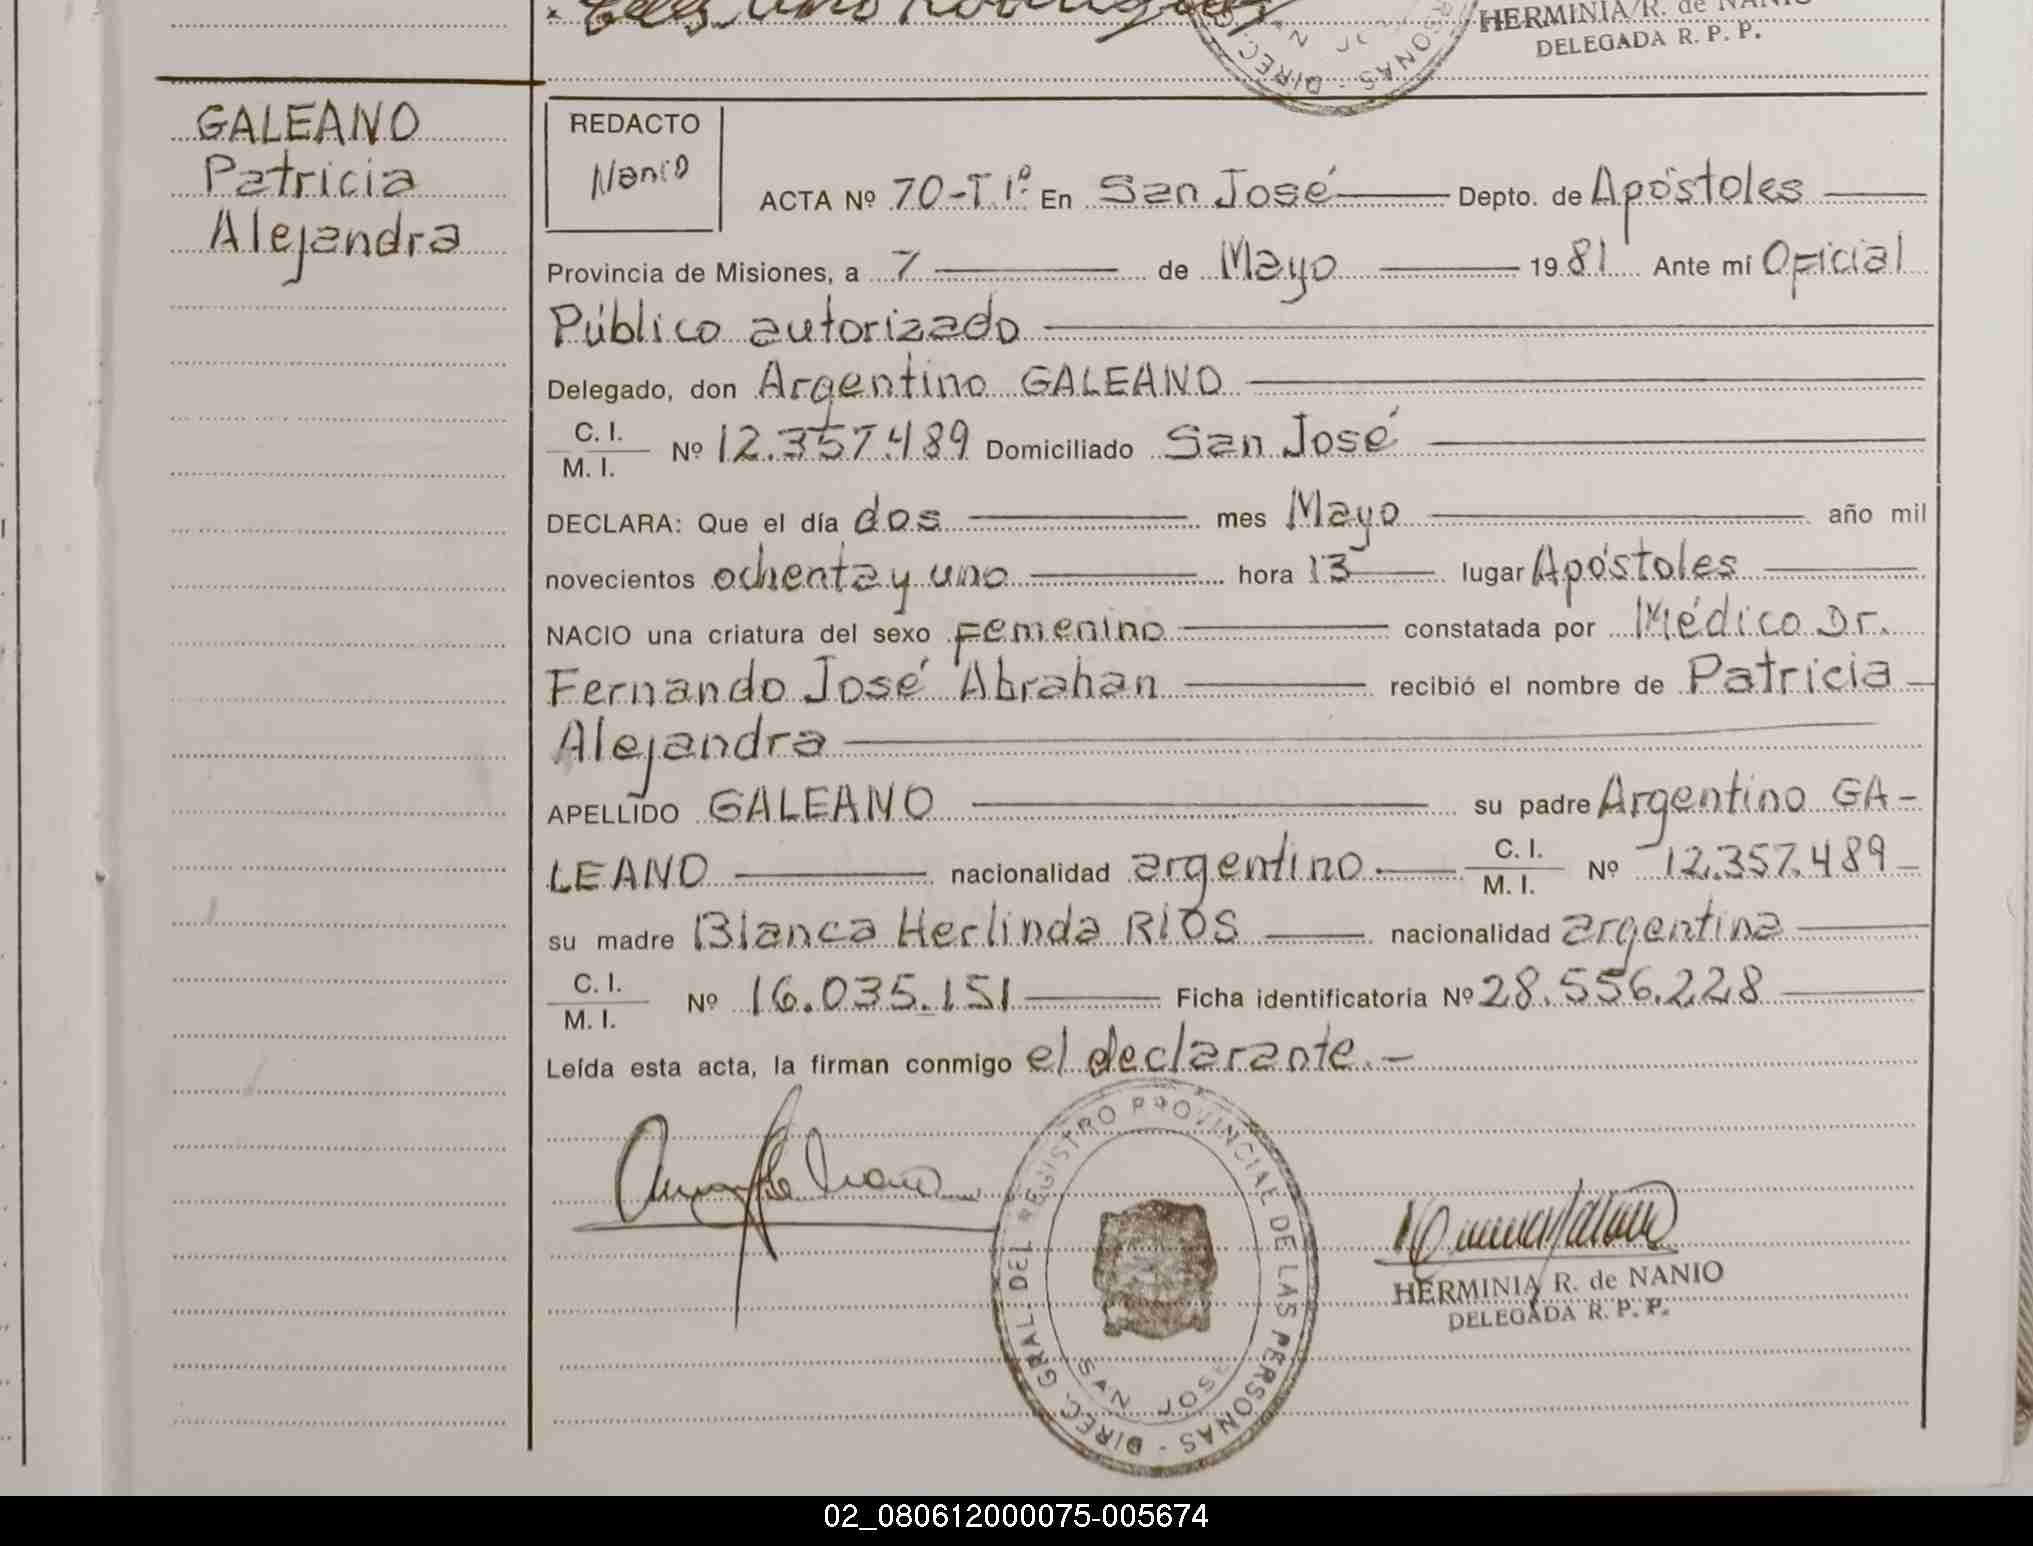 HERMINIA R. de NANIO
DELEGADA R. P. P.
GALEANO
Patricia
Alejandra
REDACTO
Nanio
ACTA Nº 70-T.1º En San José Depto. de Apóstoles
Provincia de Misiones, a 7 de Mayo 1981 Ante mí Oficial
Público autorizado
Delegado, don Argentino GALEANO
C. I.
M. I. Nº 12.357.489 Domiciliado San José
DECLARA: Que el día dos mes Mayo año mil
novecientos ochenta y uno hora 13 lugar Apóstoles
NACIO una criatura del sexo Femenino constatada por Médico Dr.
Fernando José Abrahan recibió el nombre de Patricia
Alejandra
APELLIDO GALEANO su padre Argentino GA-
LEANO nacionalidad argentino C. I.
M. I. Nº 12.357.489
su madre Blanca Herlinda RIOS nacionalidad argentina
C. I.
M. I. Nº 16.035.151 Ficha identificatoria Nº 28.556.228
Leída esta acta, la firman conmigo el declarante.-
DIREC. GRAL. DEL REGISTRO PROVINCIAL DE LAS PERSONAS -
SAN JOSE
HERMINIA R. de NANIO
DELEGADA R. P. P.
02_080612000075-005674